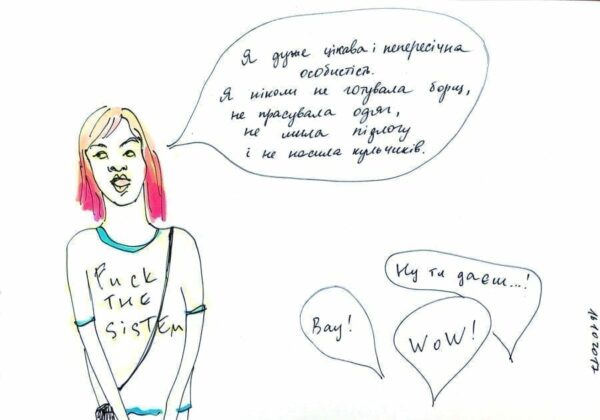 Я дуже цікава і непересічна
особистість.
Я ніколи не готувала борщ,
не прасувала одяг,
не мила підлогу
і не носила кульчиків.
Fuck
THE
SiSTEM
Ну ти даєш...!
Вау!
WoW!